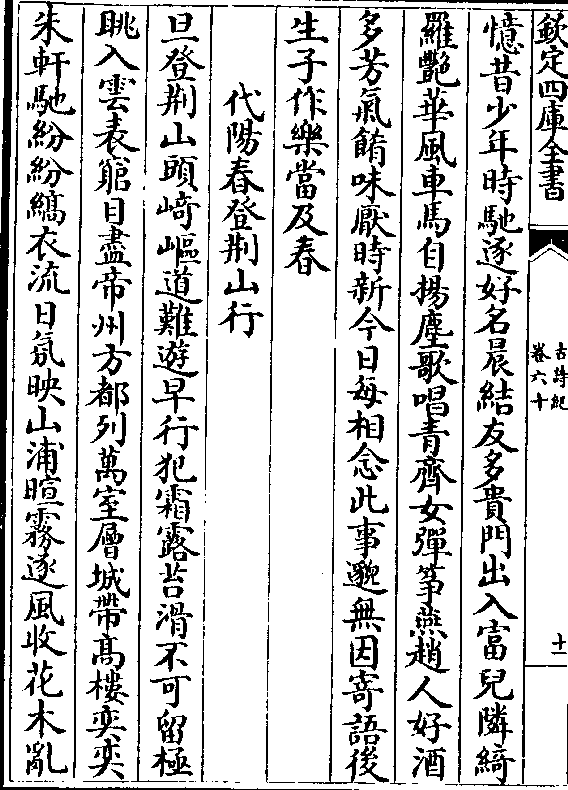 欽定四庫全書
古詩紀
卷六十
十一
憶昔少年時馳逐好名晨結友多貴門出入富兒隣綺
羅艷華風車馬自揚塵歌唱青齊女彈筝燕趙人好酒
多芳氣餚味厭時新今日每相念此事邈無因寄語後
生子作樂當及春
代陽春登荆山行
旦登荆山頭崎嶇道難遊早行犯霜露苔滑不可留極
眺入雲表窮目盡帝州方都列萬室層城帶高樓奕奕
朱軒馳紛紛縞衣流日氛映山浦暄霧逐風收花木亂